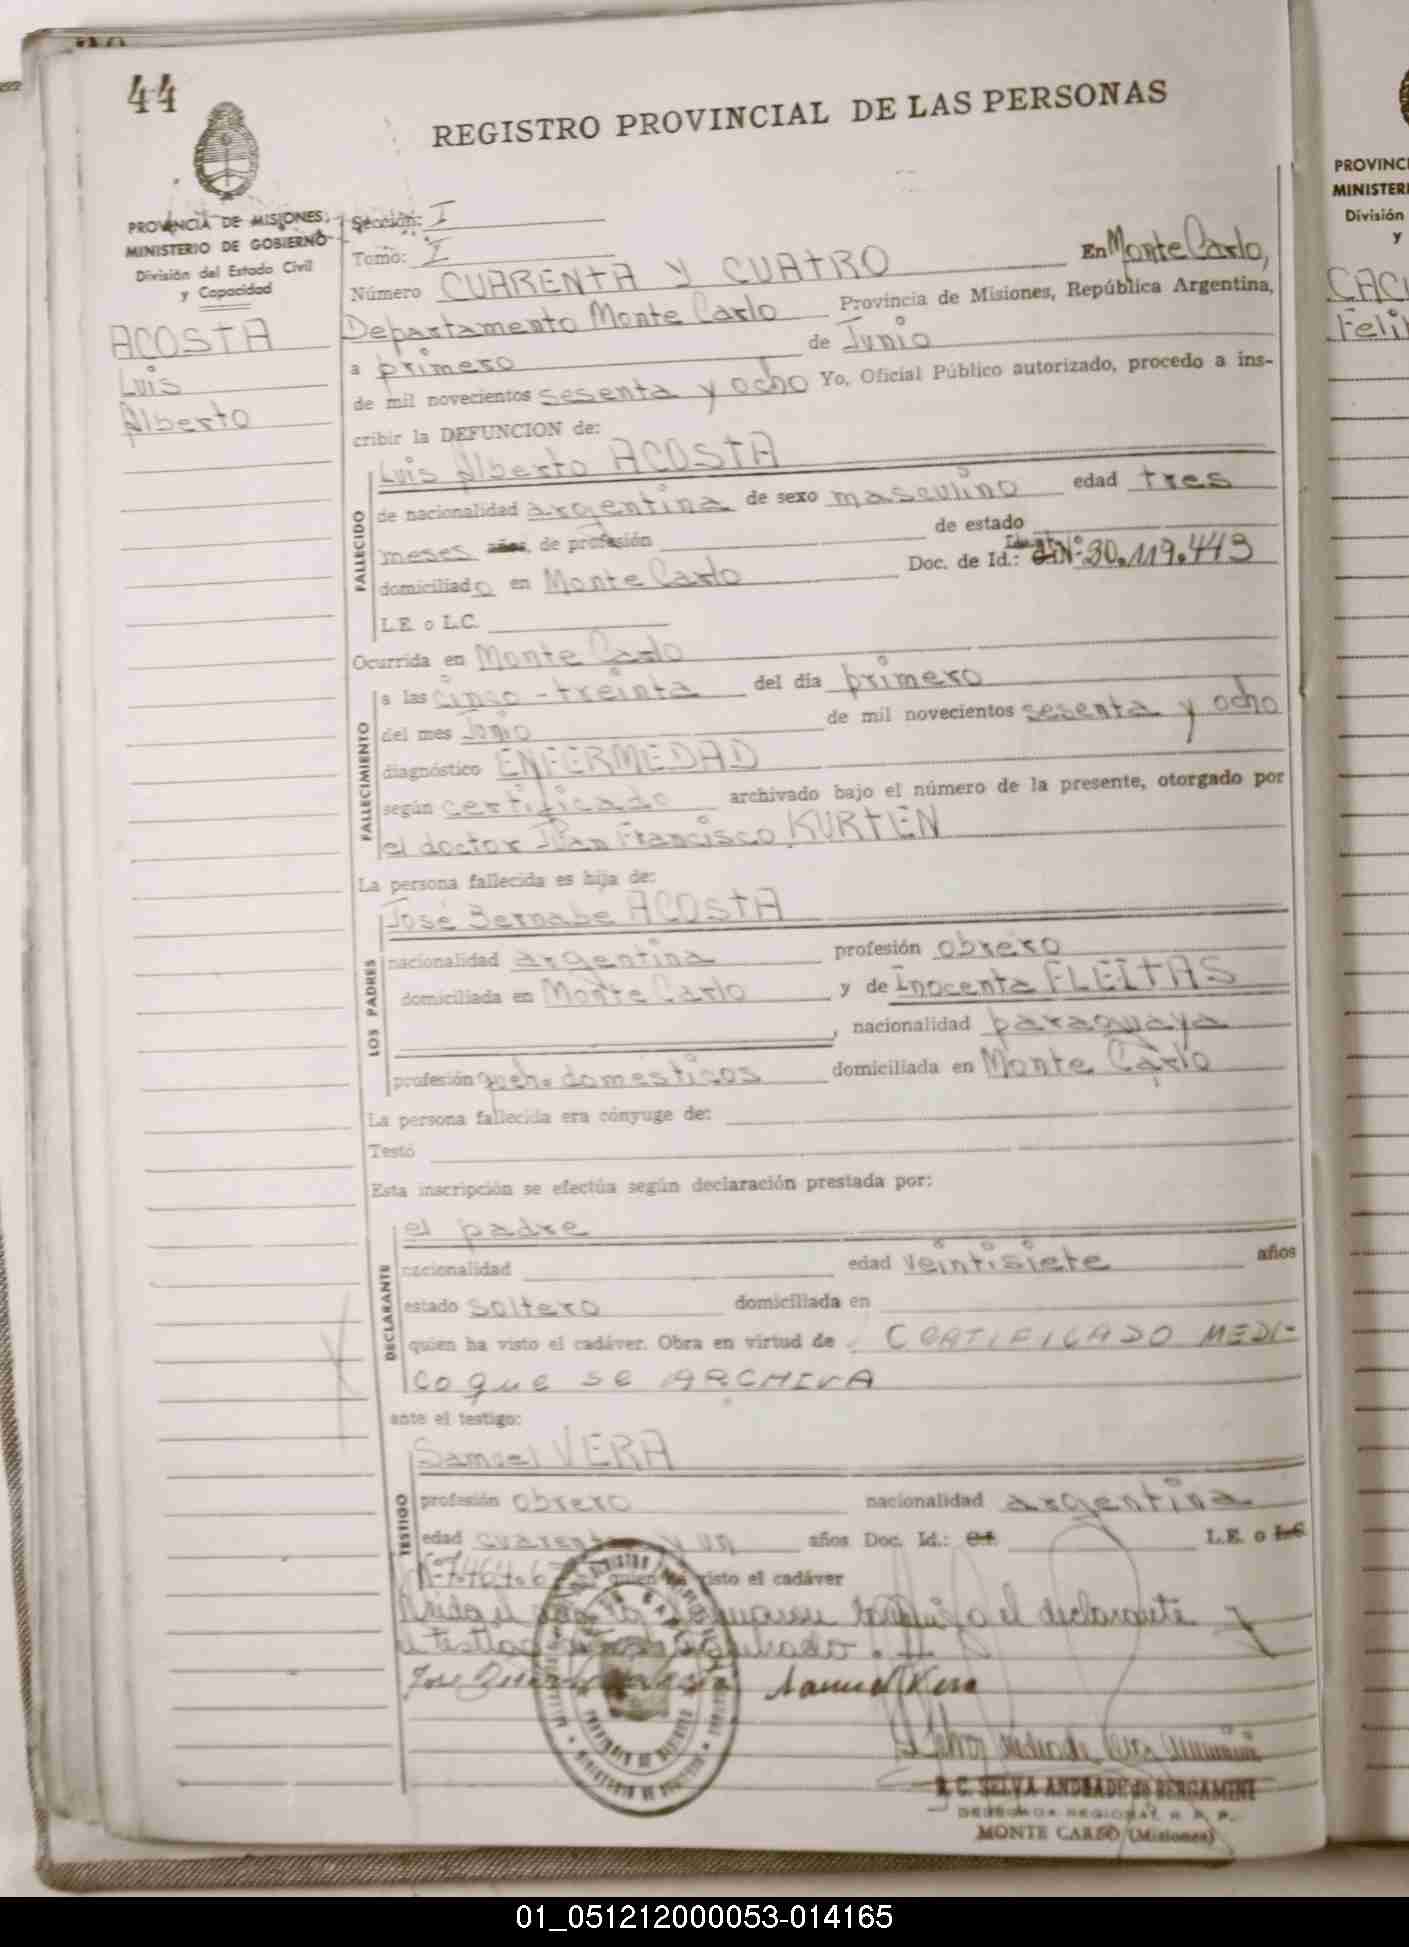 44
REGISTRO PROVINCIAL DE LAS PERSONAS
PROVINCIA DE MISIONES
MINISTERIO DE GOBIERNO
División del Estado Civil
y Capacidad
ACOSTA
Luis
Alberto
Sección: I
Tomo: I
Número CUARENTA Y CUATRO En Monte Carlo,
Departamento Monte Carlo Provincia de Misiones, República Argentina,
a primero de Junio
de mil novecientos sesenta y ocho Yo, Oficial Público autorizado, procedo a ins-
cribir la DEFUNCION de:
FALLECIDO
Luis Alberto ACOSTA
de nacionalidad argentina de sexo masculino edad tres
meses años, de profesión de estado
domiciliado en Monte Carlo Doc. de Id.: Nº 30.119.443
L.E. o L.C.
Ocurrida en Monte Carlo
FALLECIMIENTO
a las cinco - treinta del día primero
del mes Junio de mil novecientos sesenta y ocho
diagnóstico ENFERMEDAD
según certificado archivado bajo el número de la presente, otorgado por
el doctor Juan Francisco KURTEN
La persona fallecida es hija de:
LOS PADRES
José Bernabe ACOSTA
nacionalidad argentina profesión obrero
domiciliada en Monte Carlo y de Inocenta FLEITAS
, nacionalidad paraguaya
profesión queh. domesticos domiciliada en Monte Carlo
La persona fallecida era cónyuge de:
Testó
Esta inscripción se efectúa según declaración prestada por:
DECLARANTE
el padre
nacionalidad edad veintisiete años
estado soltero domiciliada en
quien ha visto el cadáver. Obra en virtud de CERTIFICADO MEDI-
CO que se ARCHIVA
ante el testigo:
TESTIGO
Samuel VERA
profesión obrero nacionalidad argentina
edad cuarenta y un años Doc. Id.: C.I. L.E. o L.C.
quien ha visto el cadáver
el declarante
Samuel Vera
PROVINCIA DE MISIONES
R. C. SELVA ANDRADE de BERGAMINI
MONTE CARLO (Misiones)
PROVINC
MINISTER
División
y
CAC
Feli
01_051212000053-014165